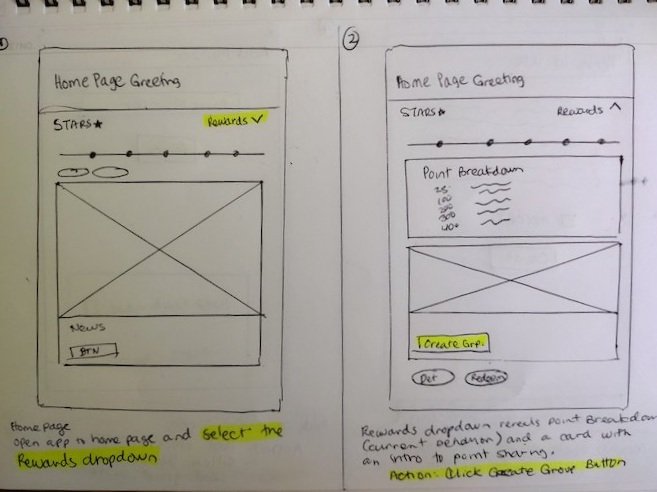 Home Page Greeting
STARS★
Rewards ∨
News
BTN
Home page
open app to home page and select the
Rewards dropdown
②
Home Page Greeting
STARS★
Rewards ∧
Point Breakdown
25
100
200
300
400
Create Grp.
Det
Redeem
Rewards dropdown reveals point Breakdown
(current behavior) and a card with
an intro to point sharing.
Action: Click Create Group Button